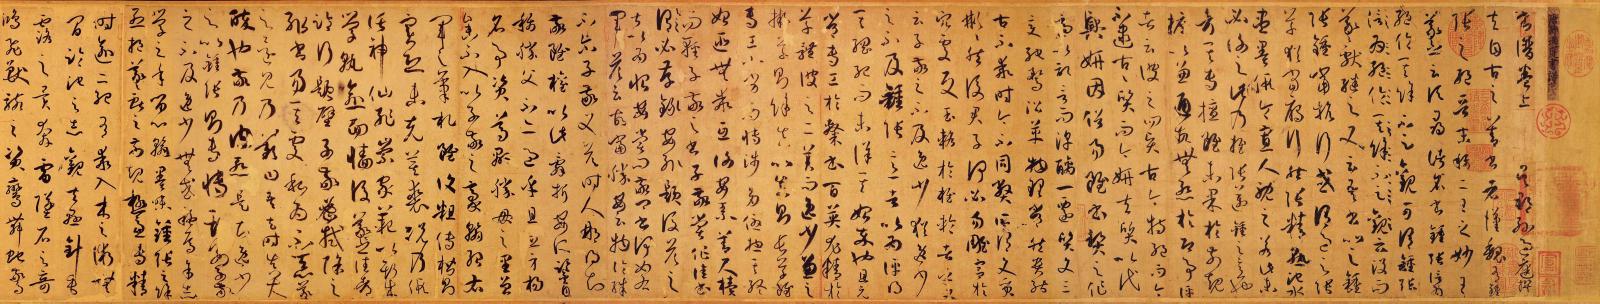 書譜卷上 吳郡孫過庭撰
夫自古之善書者漢魏有鍾
張之絕晉末稱二王之妙王
羲之云頃尋諸名書鍾張信
為絕倫其餘不足觀可謂鍾張
云沒而
羲獻繼之又云吾書比之鍾
張鍾當抗行或謂過之張
草猶當鴈行然張精熟池水
盡墨假令寡人耽之若此未
必謝之此乃推張邁鍾之意
也考其專擅雖未果於前規
摭以兼通故無慚於即事評
者云彼之四賢古今特絕而今
不逮古古質而今妍夫質以代
興妍因俗易雖書契之作
適以記言而淳醨一遷質文三
變馳騖沿革物理常然貴能
古不乖時今不同弊所謂文質
彬彬然後君子何必易雕宮於
穴處反玉輅於椎輪者乎又
云子敬之不及逸少猶逸少
之不及鍾張意者以為評得
其綱紀而未詳其始卒也且元
常專工於隸書百英尤精於
草體彼之二美而逸少兼之
擬草則餘真比真則長草雖
專工小劣而博涉多優摠其終
始匪無乖互謝安素善尺牘
而輕子敬之書子敬嘗作佳書
與之謂必存錄安輒題後答之
甚以為恨安嘗問敬卿書何如
右軍答云故當勝安云物論殊
不爾子敬又答時人那得知
敬雖權以此辭折安所鑒自
稱勝父不亦過乎且立身揚
名事資尊顯勝母之里曾
參不入以子敬之豪翰紹右
軍之筆札雖復粗傳楷則
實恐未克箕裘況乃假
託神仙恥崇家範以斯成
學孰愈面牆後羲之往都
臨行題壁子敬密拭除之
輒書易其處私為不惡羲
之還見乃歎曰吾去時真大
醉也敬乃內慚是知逸少
之比鍾張則專博斯別子敬
之不及逸少無或疑焉余志
學之年留心翰墨味鍾張之餘
烈挹羲獻之前規極慮專精
時逾二紀有乖入木之術無
間臨池之志觀夫懸針垂
露之異奔雷墜石之奇
鴻飛獸駭之資鸞舞蛇驚